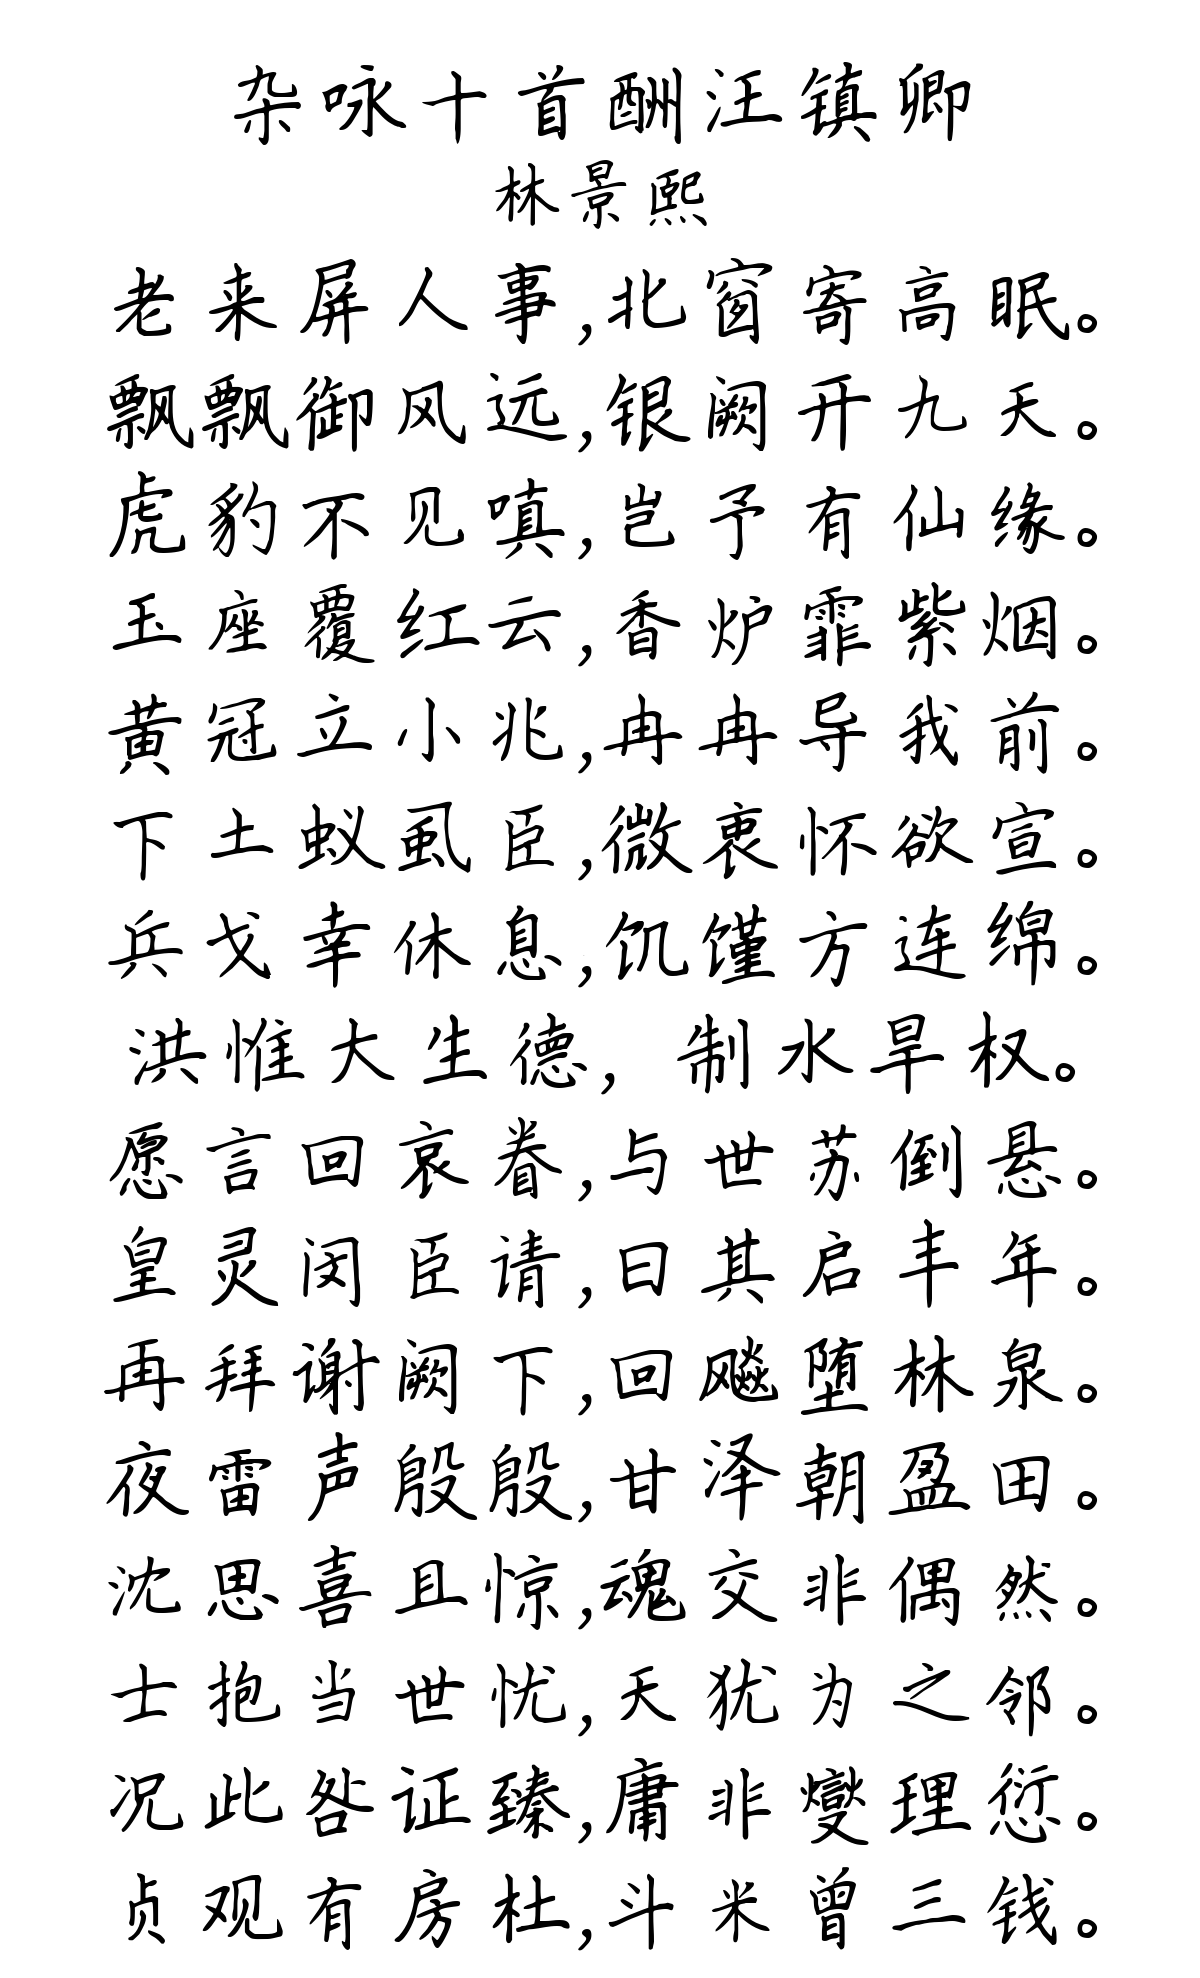 杂咏十首酬汪镇卿
林景熙
老来屏人事,北窗寄高眠。
飘飘御风远,银阙开九天。
虎豹不见嗔,岂予有仙缘。
玉座覆红云,香炉霏紫烟。
黄冠立小兆,冉冉导我前。
下土蚁虱臣,微衷怀欲宣。
兵戈幸休息,饥馑方连绵。
洪惟大生德,制水旱权。
愿言回哀眷,与世苏倒悬。
皇灵闵臣请,曰其启丰年。
再拜谢阙下,回飚堕林泉。
夜雷声殷殷,甘泽朝盈田。
沈思喜且惊,魂交非偶然。
士抱当世忧,天犹为之邻。
况此咎证臻,庸非燮理愆。
贞观有房杜,斗米曾三钱。